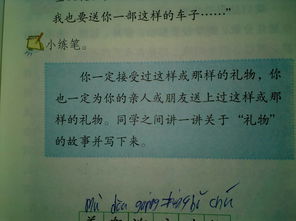 我也要送你一部这样的车子……”
小练笔。
你一定接受过这样或那样的礼物，你
也一定为你的亲人或朋友送上过这样或那
样的礼物。同学之间讲一讲关于“礼物”
的故事并写下来。